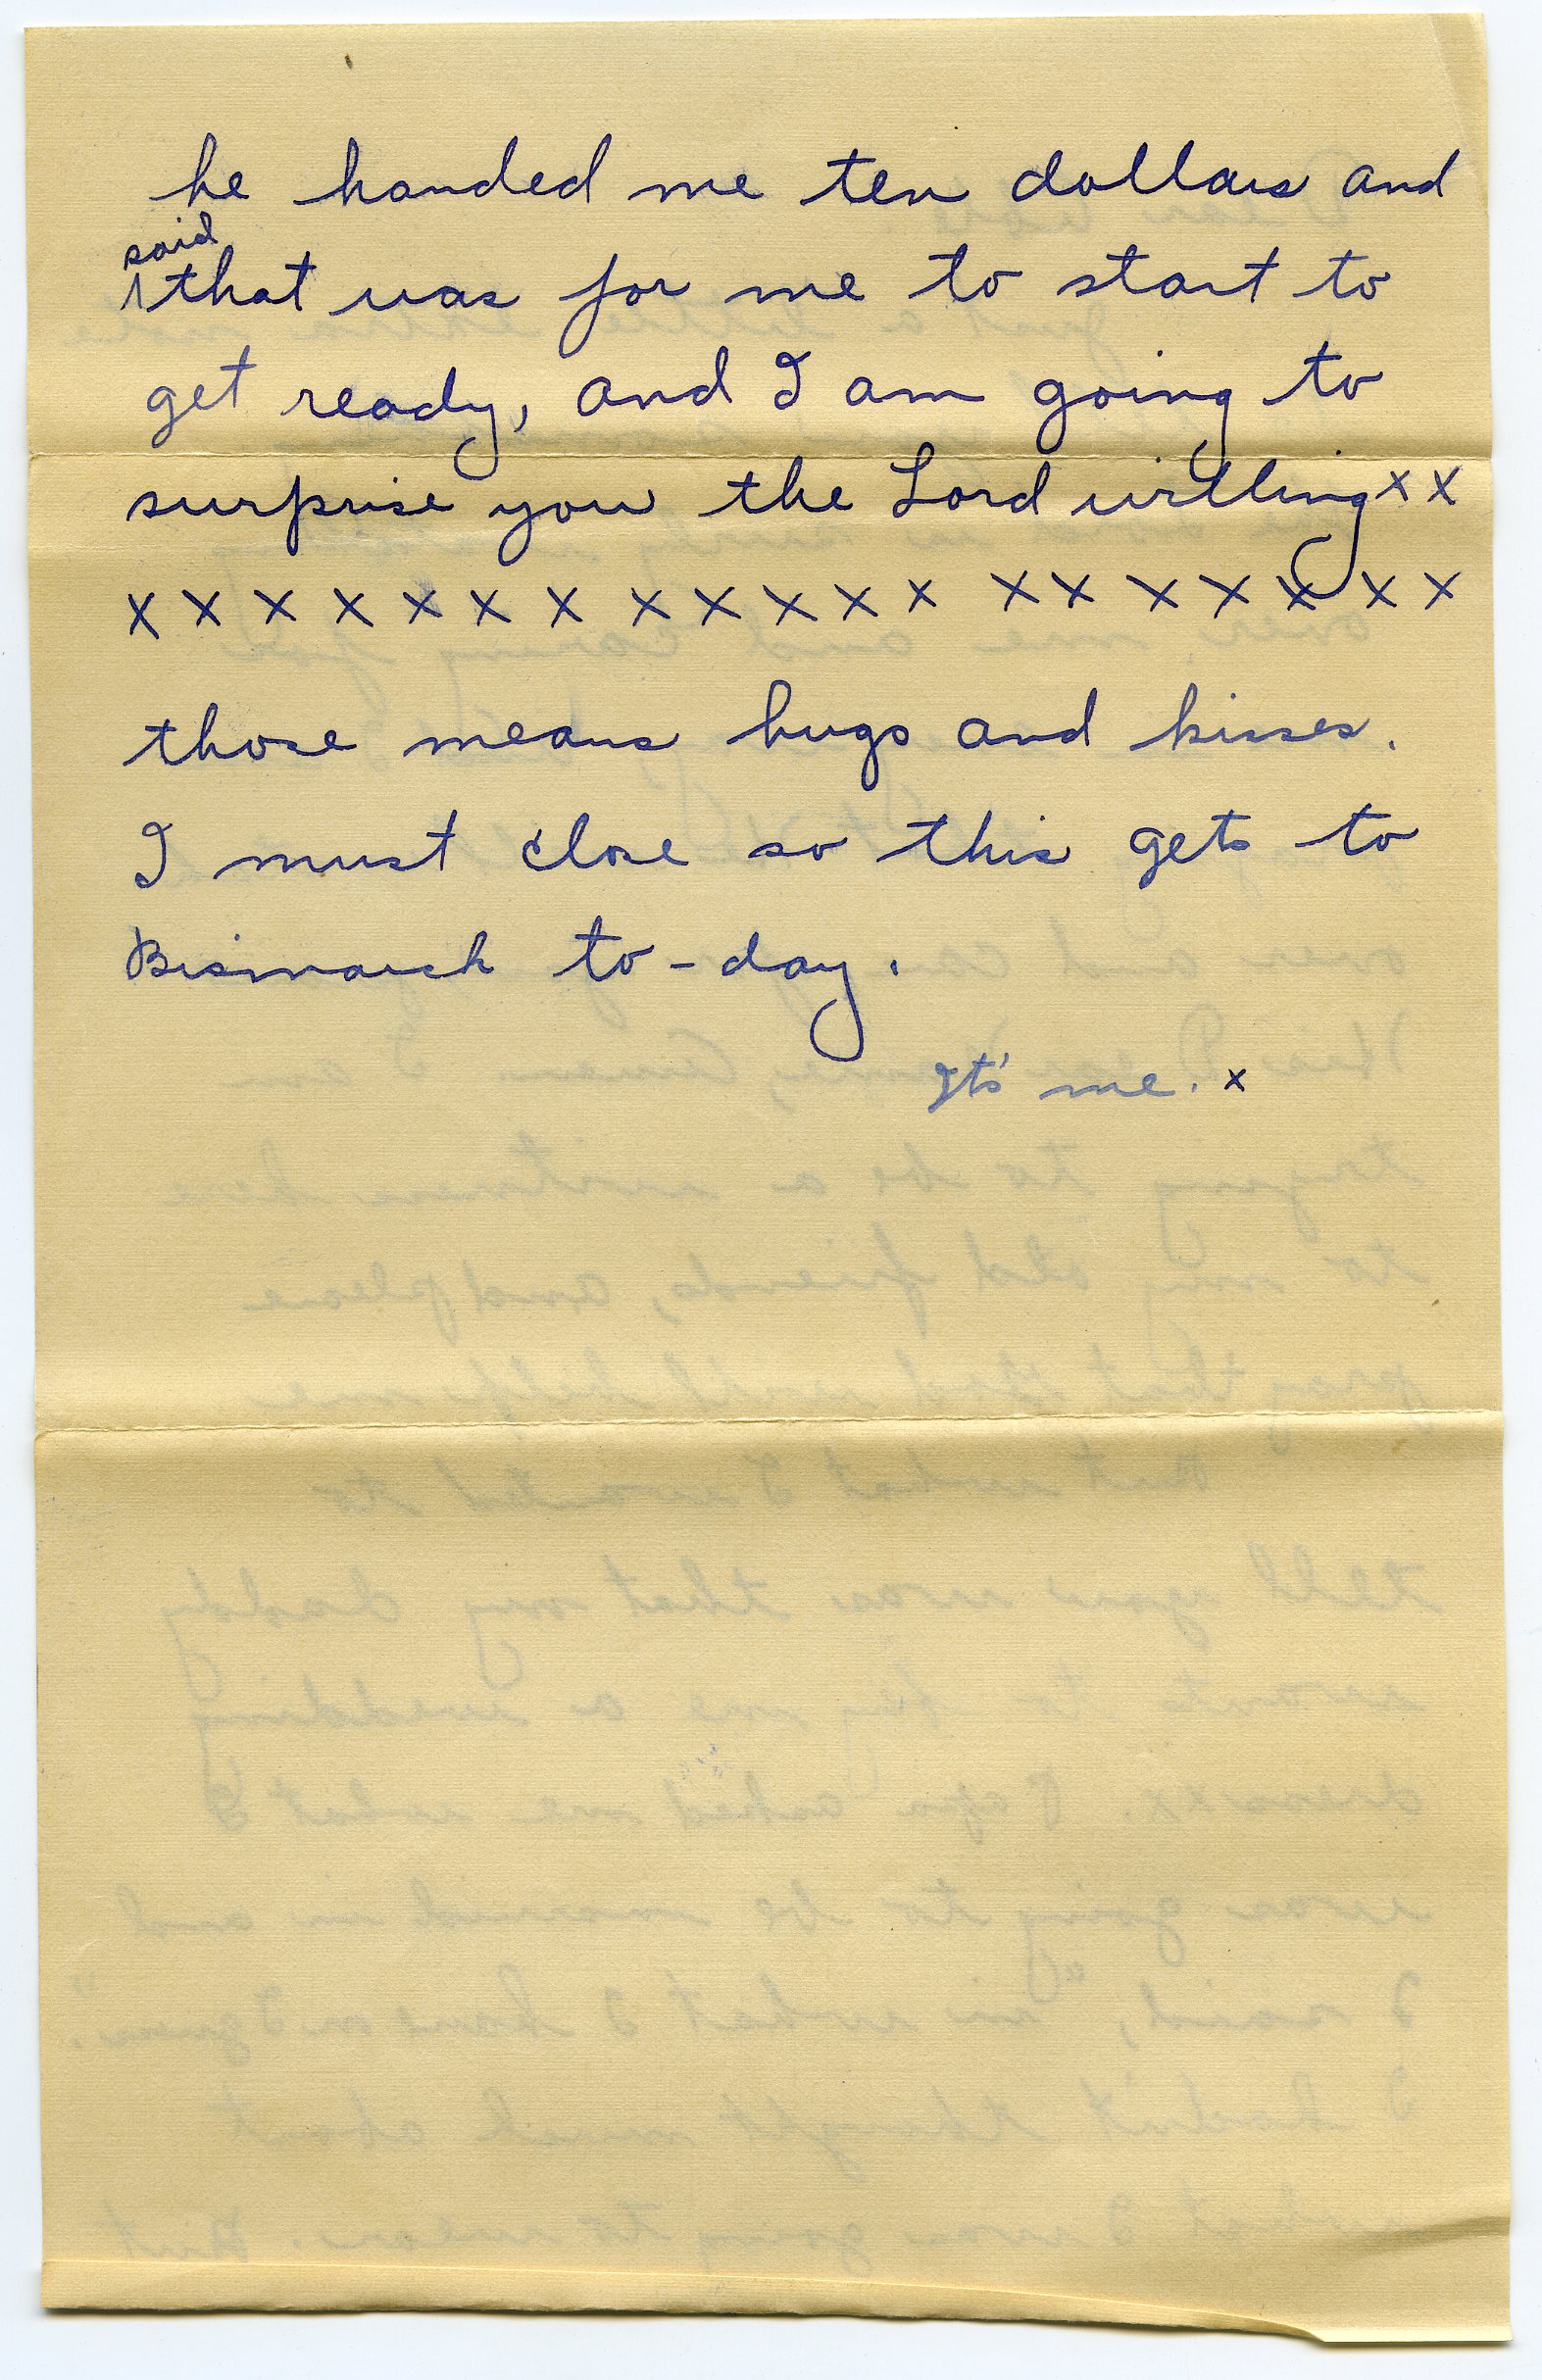 he handed me ten dollars and
said
that was for me to start to
get ready, and I am going to
surprise you the Lord willing x x
x x x x x x x x x x x x x x x x x x x
those means hugs and kisses.
I must close so this gets to
Bismarck to-day.
It's me. x